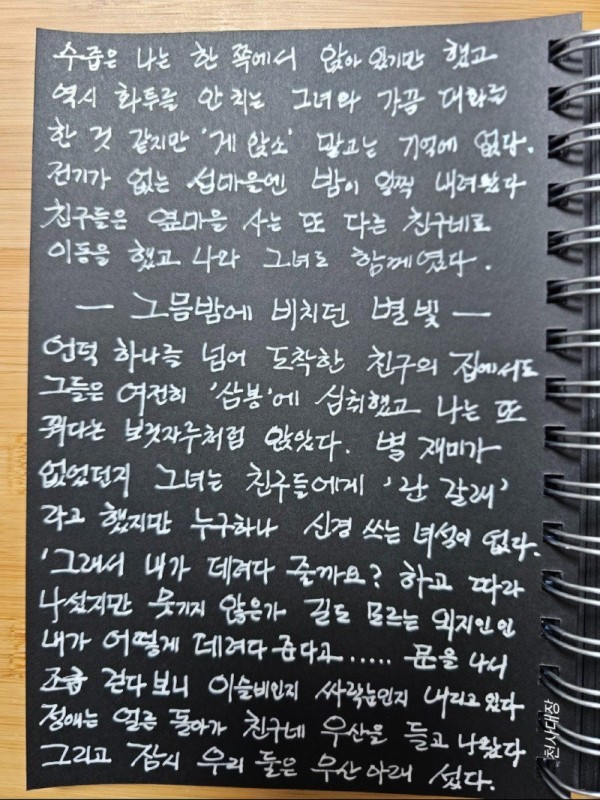 수줍은 나는 한 쪽에서 앉아 있기만 했고
역시 화투를 안 치는 그녀와 가끔 대화를
한 것 같지만 '게 앉소' 말고는 기억에 없다.
전기가 없는 섬마을엔 밤이 일찍 내려왔다
친구들은 옆마을 사는 또 다른 친구네로
이동을 했고 나와 그녀도 함께였다.
— 그믐밤에 비치던 별빛 —
언덕 하나를 넘어 도착한 친구의 집에서도
그들은 여전히 '삼봉'에 심취했고 나는 또
꿔다논 보릿자루처럼 앉았다. 별 재미가
없었던지 그녀는 친구들에게 '난 갈래'
라고 했지만 누구하나 신경 쓰는 녀석이 없다.
'그래서 내가 데려다 줄까요? 하고 따라
나섰지만 웃기지 않은가 길도 모르는 외지인인
내가 어떻게 데려다 준다고..... 문을 나서
조금 걷다보니 이슬비인지 싸락눈인지 내리고 있다
정애는 얼른 돌아가 친구네 우산을 들고 나왔다
그리고 잠시 우리 둘은 우산 아래 섰다.
천사대장